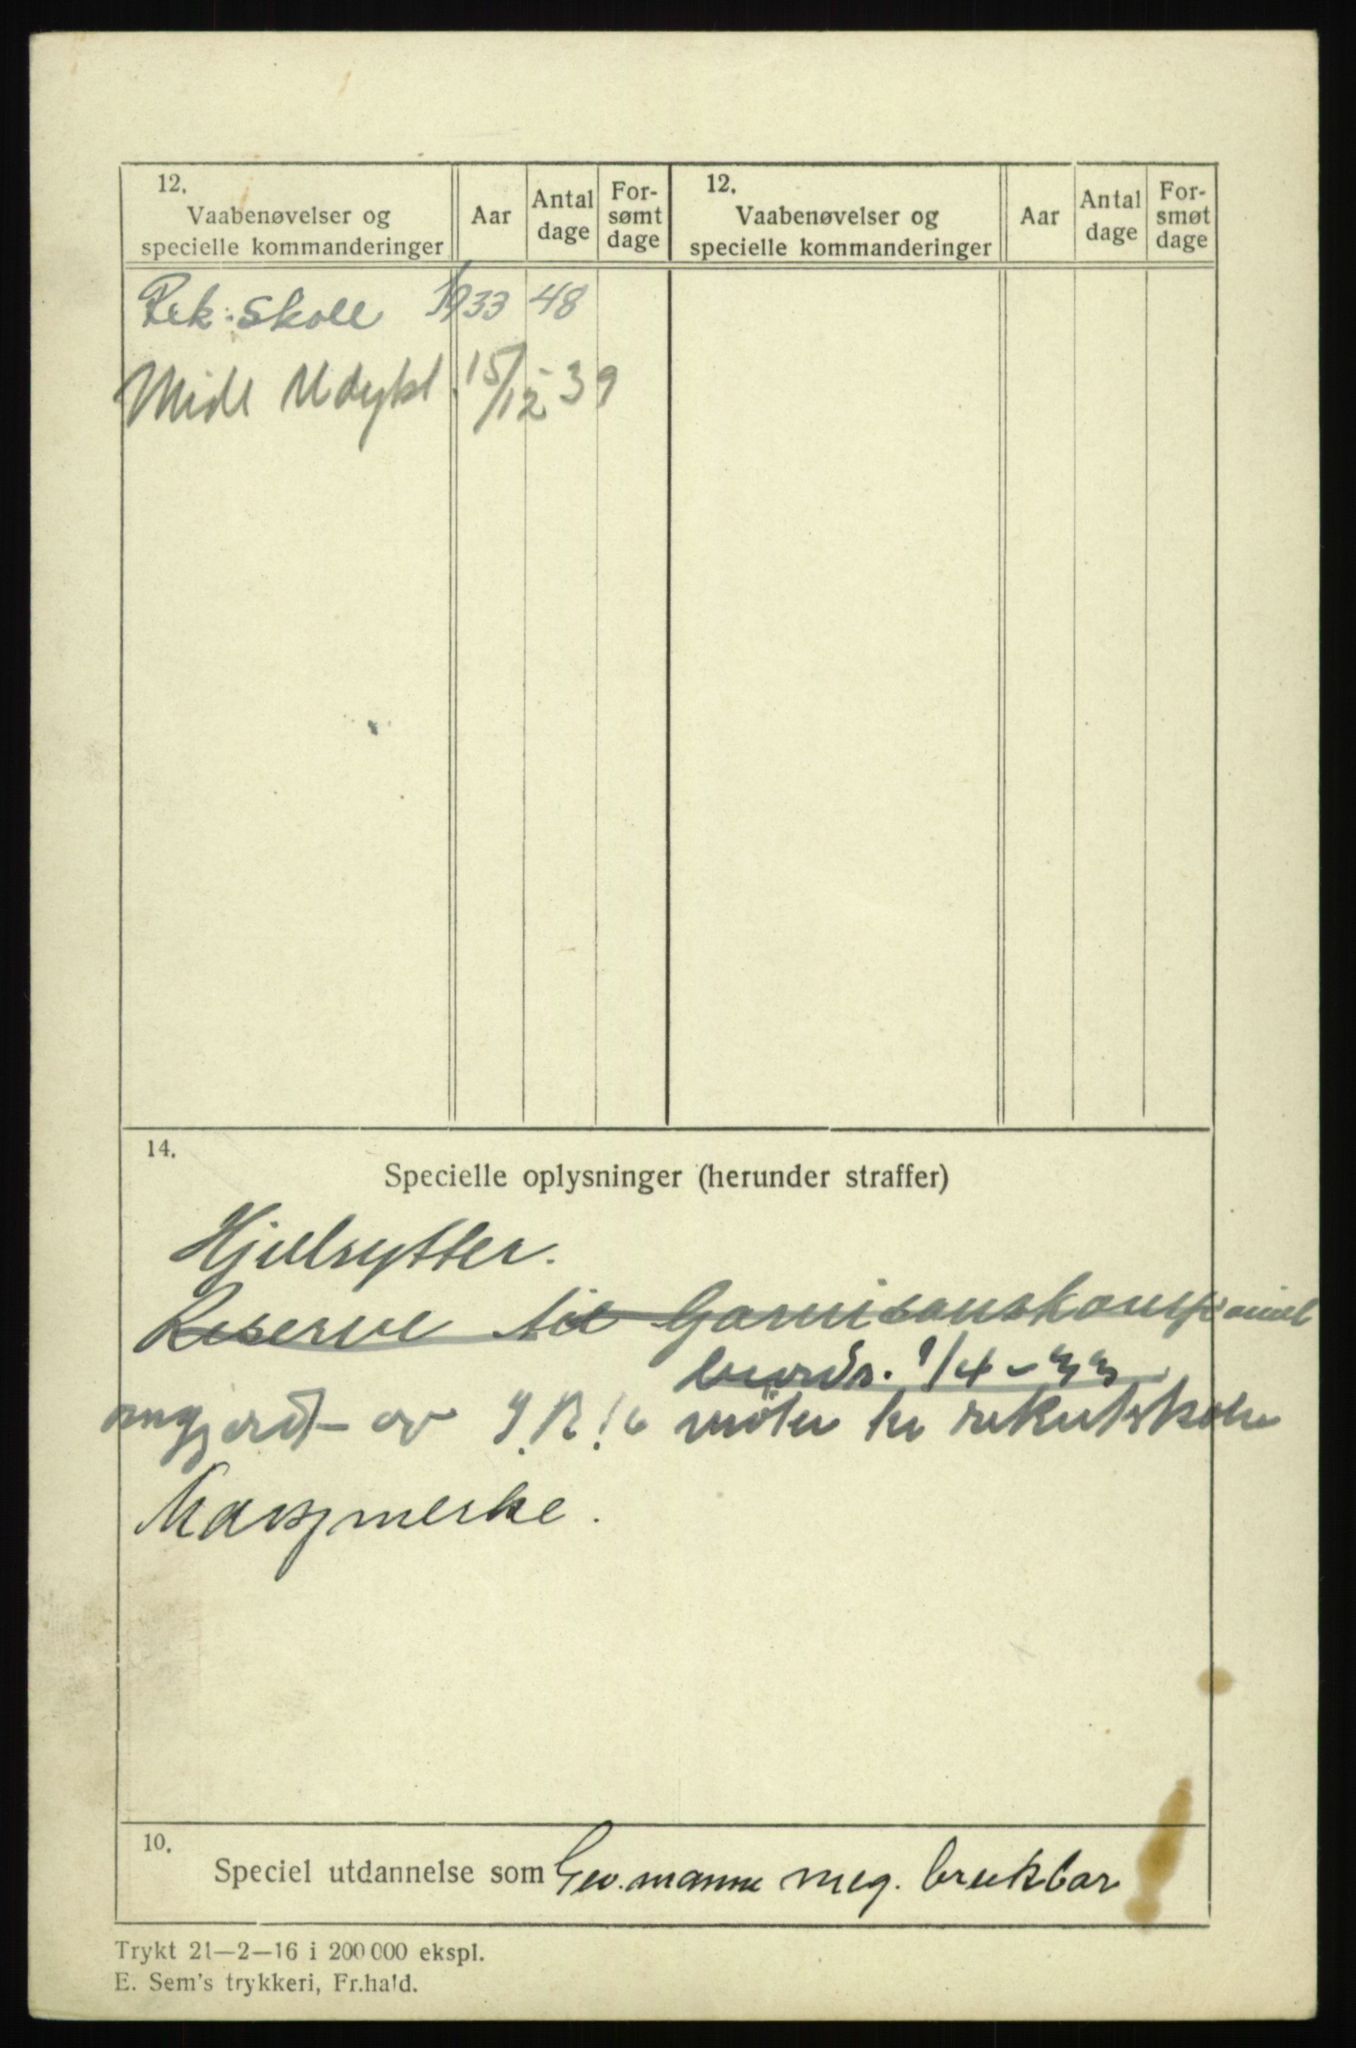 12.
Vaabenøvelser og
specielle kommanderinger
Aar
Antal
dage
For-
sømt
dage
12.
Vaabenøvelser og
specielle kommanderinger
Aar
Antal
dage
For-
smøt
dage
Rek. skole 1933 48
Midl Udykt. 15/12-39
14.
Specielle oplysninger (herunder straffer)
Hjulrytter.
Reserve til Garnisonskompaniet
1/4-33
omgjort av I.R.16 møter til rekrutskole
Marsjmerke.
10.
Speciel utdannelse som Gev.mann meg. brukbar
Trykt 21-2-16 i 200 000 ekspl.
E. Sem's trykkeri, Fr.hald.